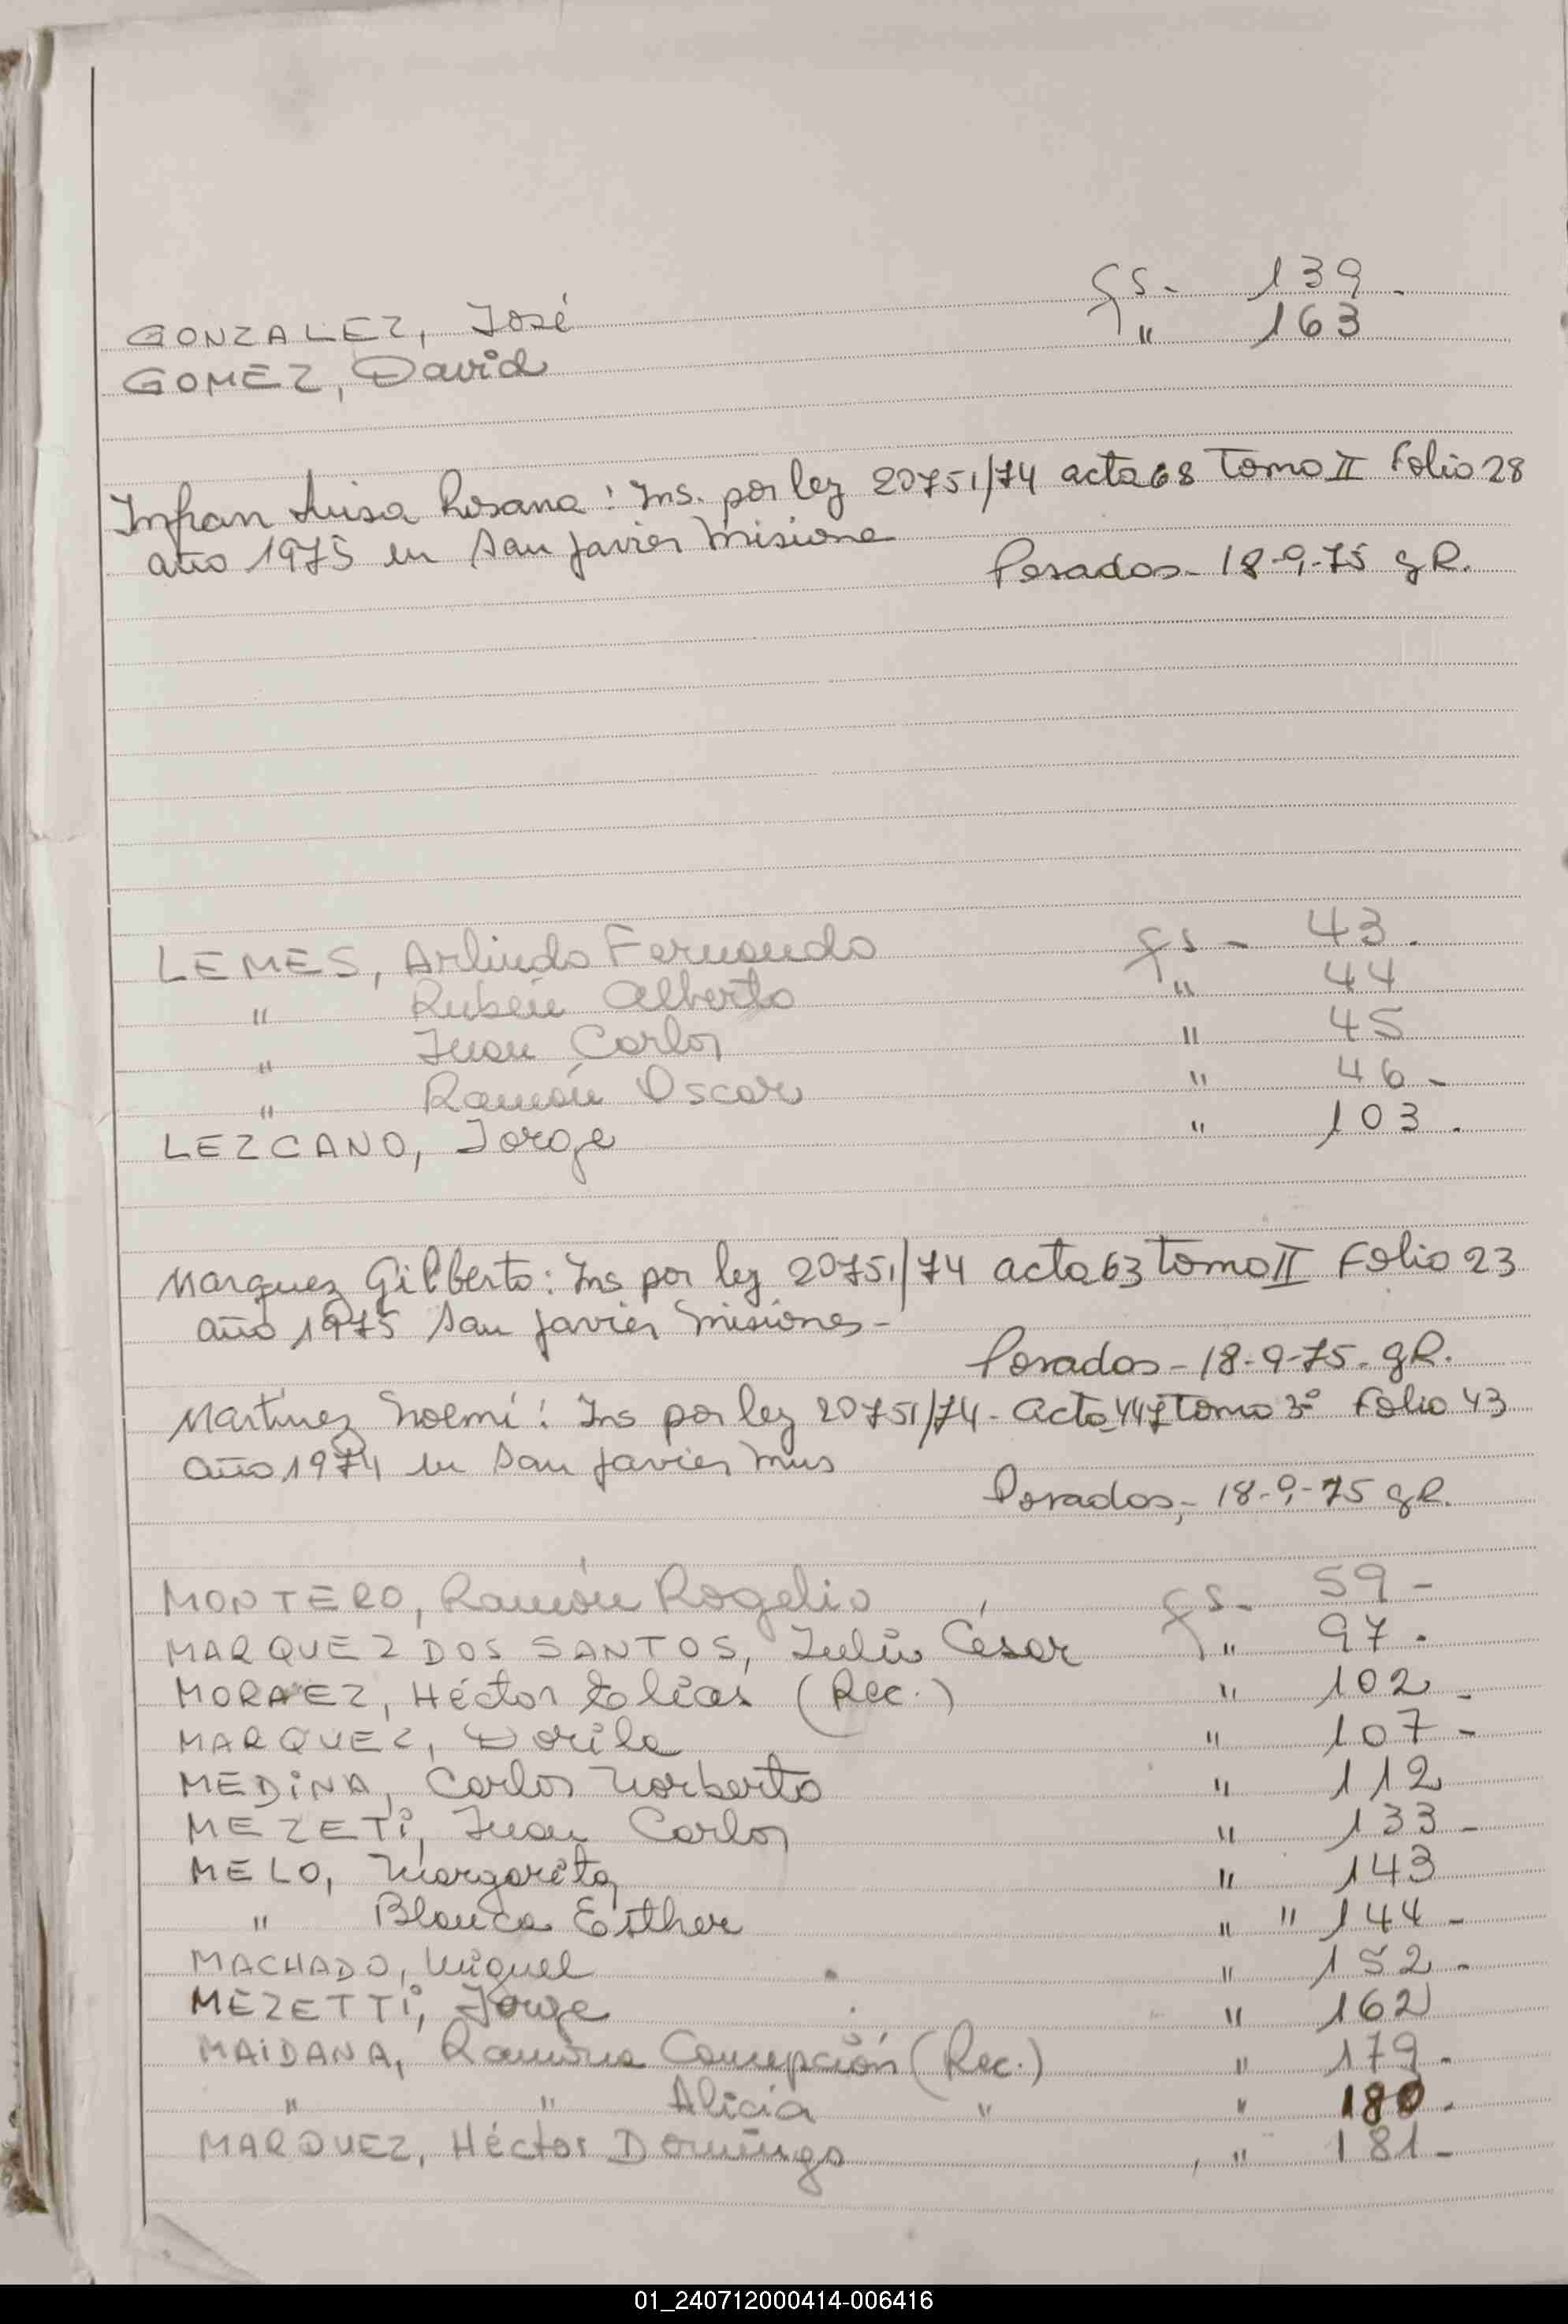 GONZALEZ, José fs- 139.
GOMEZ, David " 163
Infran Luisa Rosana: Ins. por ley 20751/74 acta 68 Tomo II Folio 28
año 1975 en San Javier Misione
Posadas- 18-9-75 gR.
LEMES, Arlindo Fernando fs- 43.
" Rubén Alberto " 44
" Juan Carlos " 45
" Ramón Oscar " 46-
LEZCANO, Jorge " 103.
Marquez Gilberto: Ins por ley 20751/74 acta 63 tomo II Folio 23
año 1975 San Javier Misiones-
Posadas-18-9-75-gR.
Martinez Noemí: Ins por ley 20751/74- acta 447 Tomo 3º Folio 43
año 1974 en San Javier Mnes
Posadas,- 18-9-75 gR.
MONTERO, Ramón Rogelio fs- 59-
MARQUEZ DOS SANTOS, Julio César " 97.
MORAEZ, Héctor Elías (Rec.) " 102-
MARQUEZ, Dorila " 107-
MEDINA, Carlos Norberto " 112
MEZETI, Juan Carlos " 133-
MELO, Margarita " 143
" Blanca Esther " " 144-
MACHADO, Miguel " 152-
MEZETTI, Jorge " 162
MAIDANA, Ramona Concepción (Rec.) " 179-
" " Alicia " " 180.
MARQUEZ, Héctor Domingo " 181-
01_240712000414-006416